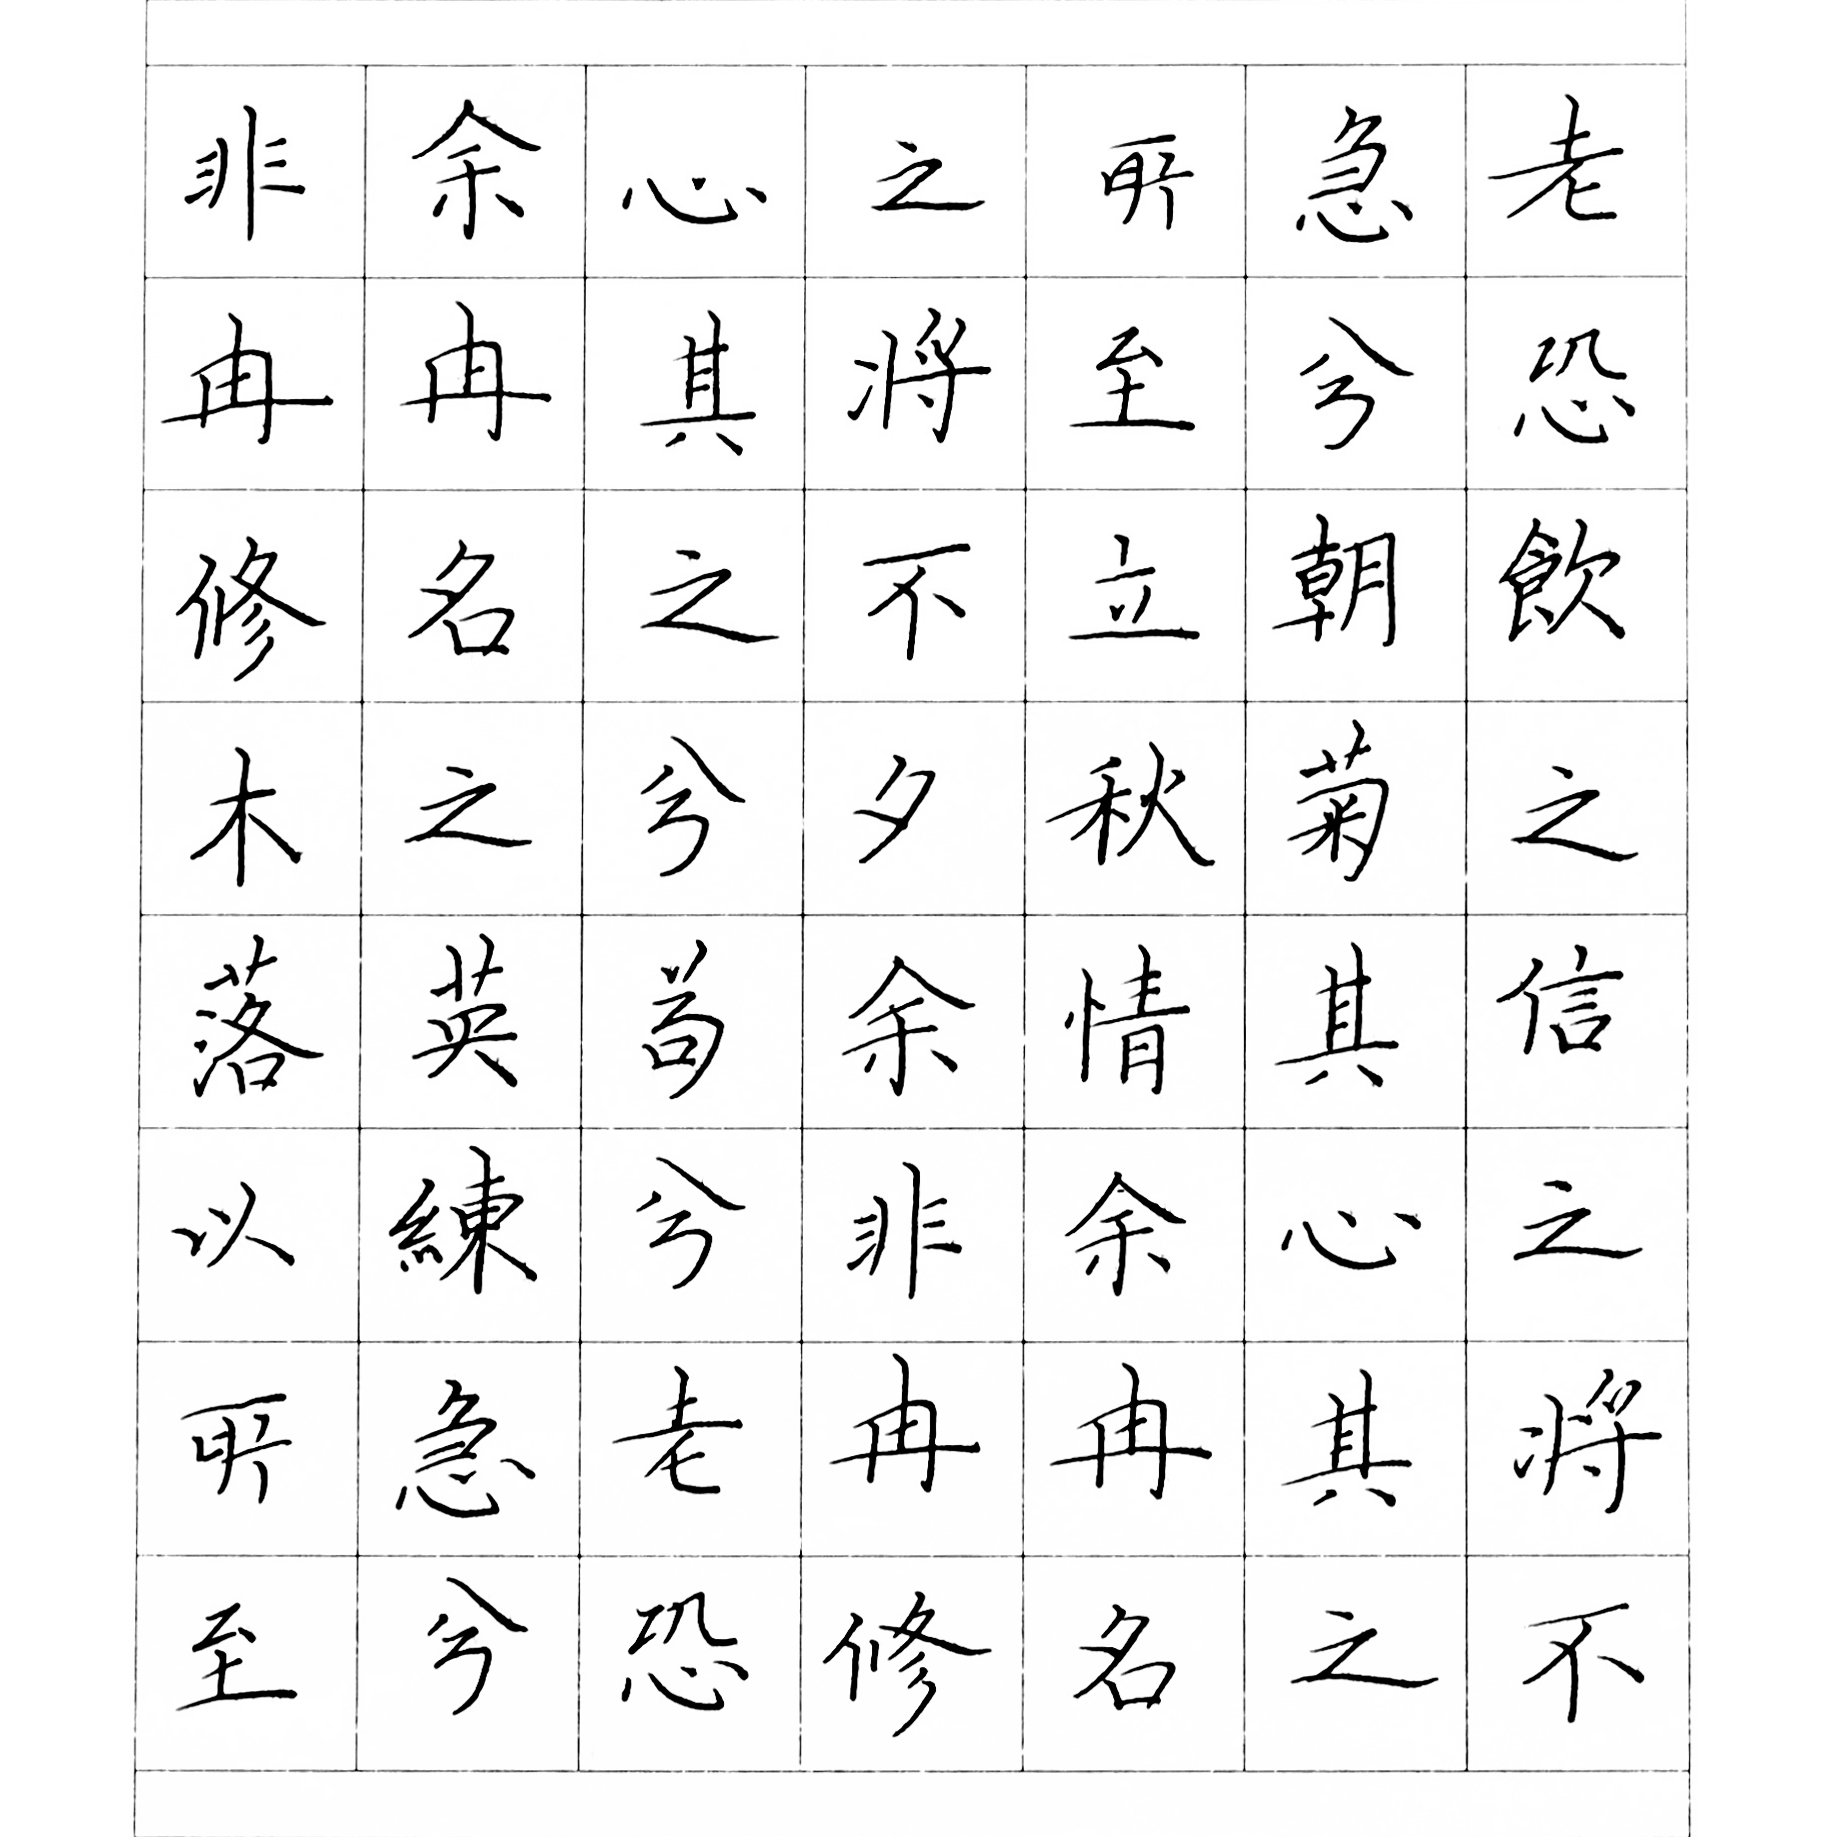 非余心之所急老
冉冉其将至兮恐
修名之不立朝飲
木之兮夕秋菊之
落英苟余情其信
以練兮非余心之
所急老冉冉其将
至兮恐修名之不